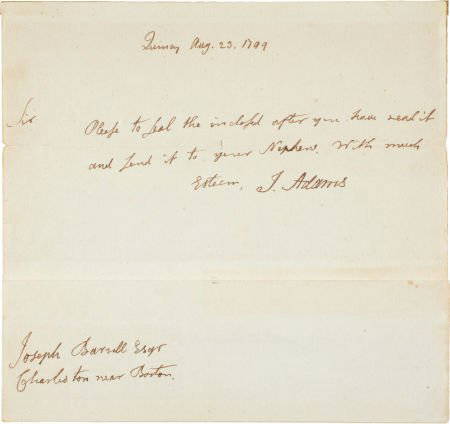 Quincy Aug. 23. 1799
Sir
Please to seal the inclosed after you have read it
and send it to your Nephew. With much
Esteem, J. Adams
Joseph Barrell Esqr
Charleston near Boston.